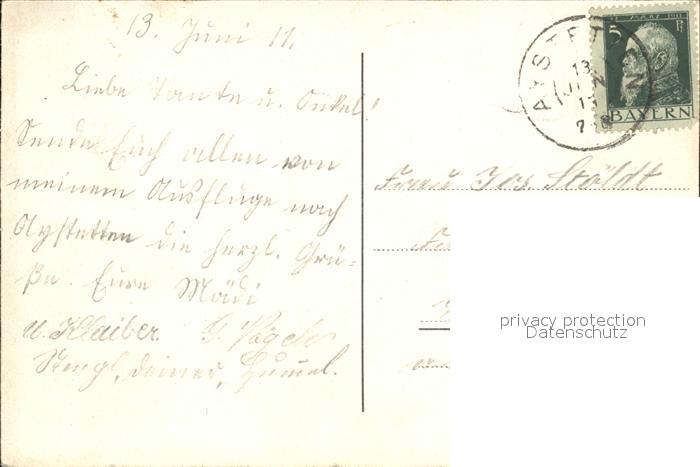 13. Juni 11.
Liebe Tante u. Onkel!
Sende Euch allen von
meinem Ausfluge nach
Aystetten die herzl. Grü-
ße. Eure Mädi
u. Klaiber. G. Vögele
Stengl, deiner, Hummel.
Frau Jos Stöldt
AYSTETTEN
13
JUN
7
5 Pf
BAYERN
privacy protection
Datenschutz